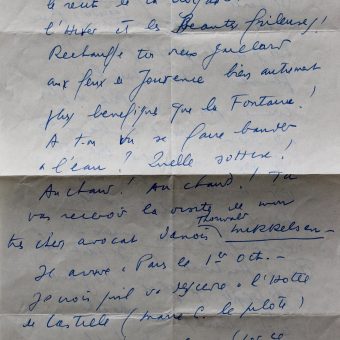 le vent et la
l'Hiver et les Beautés frileuses!
Rechauffe toi vieux gaillard
aux feux de Jouvence bien autrement
plus benefique que la Fontaine!
A t-on vu se faire bander
a l'eau? Quelle sottise!
Au chaud! Au chaud! Tu
vas recevoir la visite de mon
tres cher avocat danois Thorwald Mikkelsen —
Je arrive a Paris le 1er Oct. —
Je crois qu'il va descendre a l'Hotel
de Castille (Marie C. le pilote)